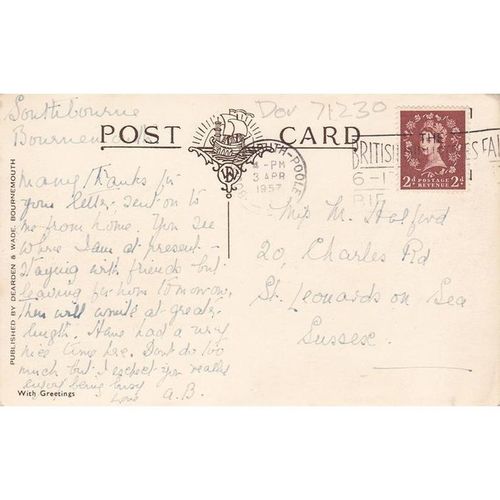 Southbourne
Bournem
Dov 71230
POST CARD
Many thanks for
your letter sent on to
me from home. You see
where I am at present -
staying with friends but
leaving for home tomorrow,
then will write at greater
length. Have had a very
nice time here. Don't do too
much but I expect you really
enjoy being busy
Love A.B.
With Greetings
PUBLISHED BY DEARDEN & WADE, BOURNEMOUTH
MOUTH-POOLE
4-PM
3 APR
1957
THE
BRITISH
ES FAI
6-1
BIF
2d POSTAGE REVENUE 2d
Miss M. Halford
20, Charles Rd
St. Leonards on Sea
Sussex.